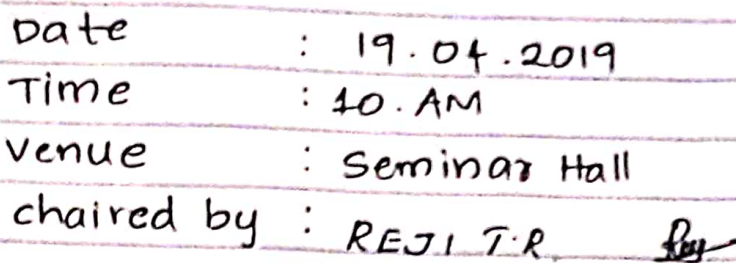 Date : 19.04.2019
Time : 10.AM
Venue : Seminar Hall
chaired by : REJI T.R